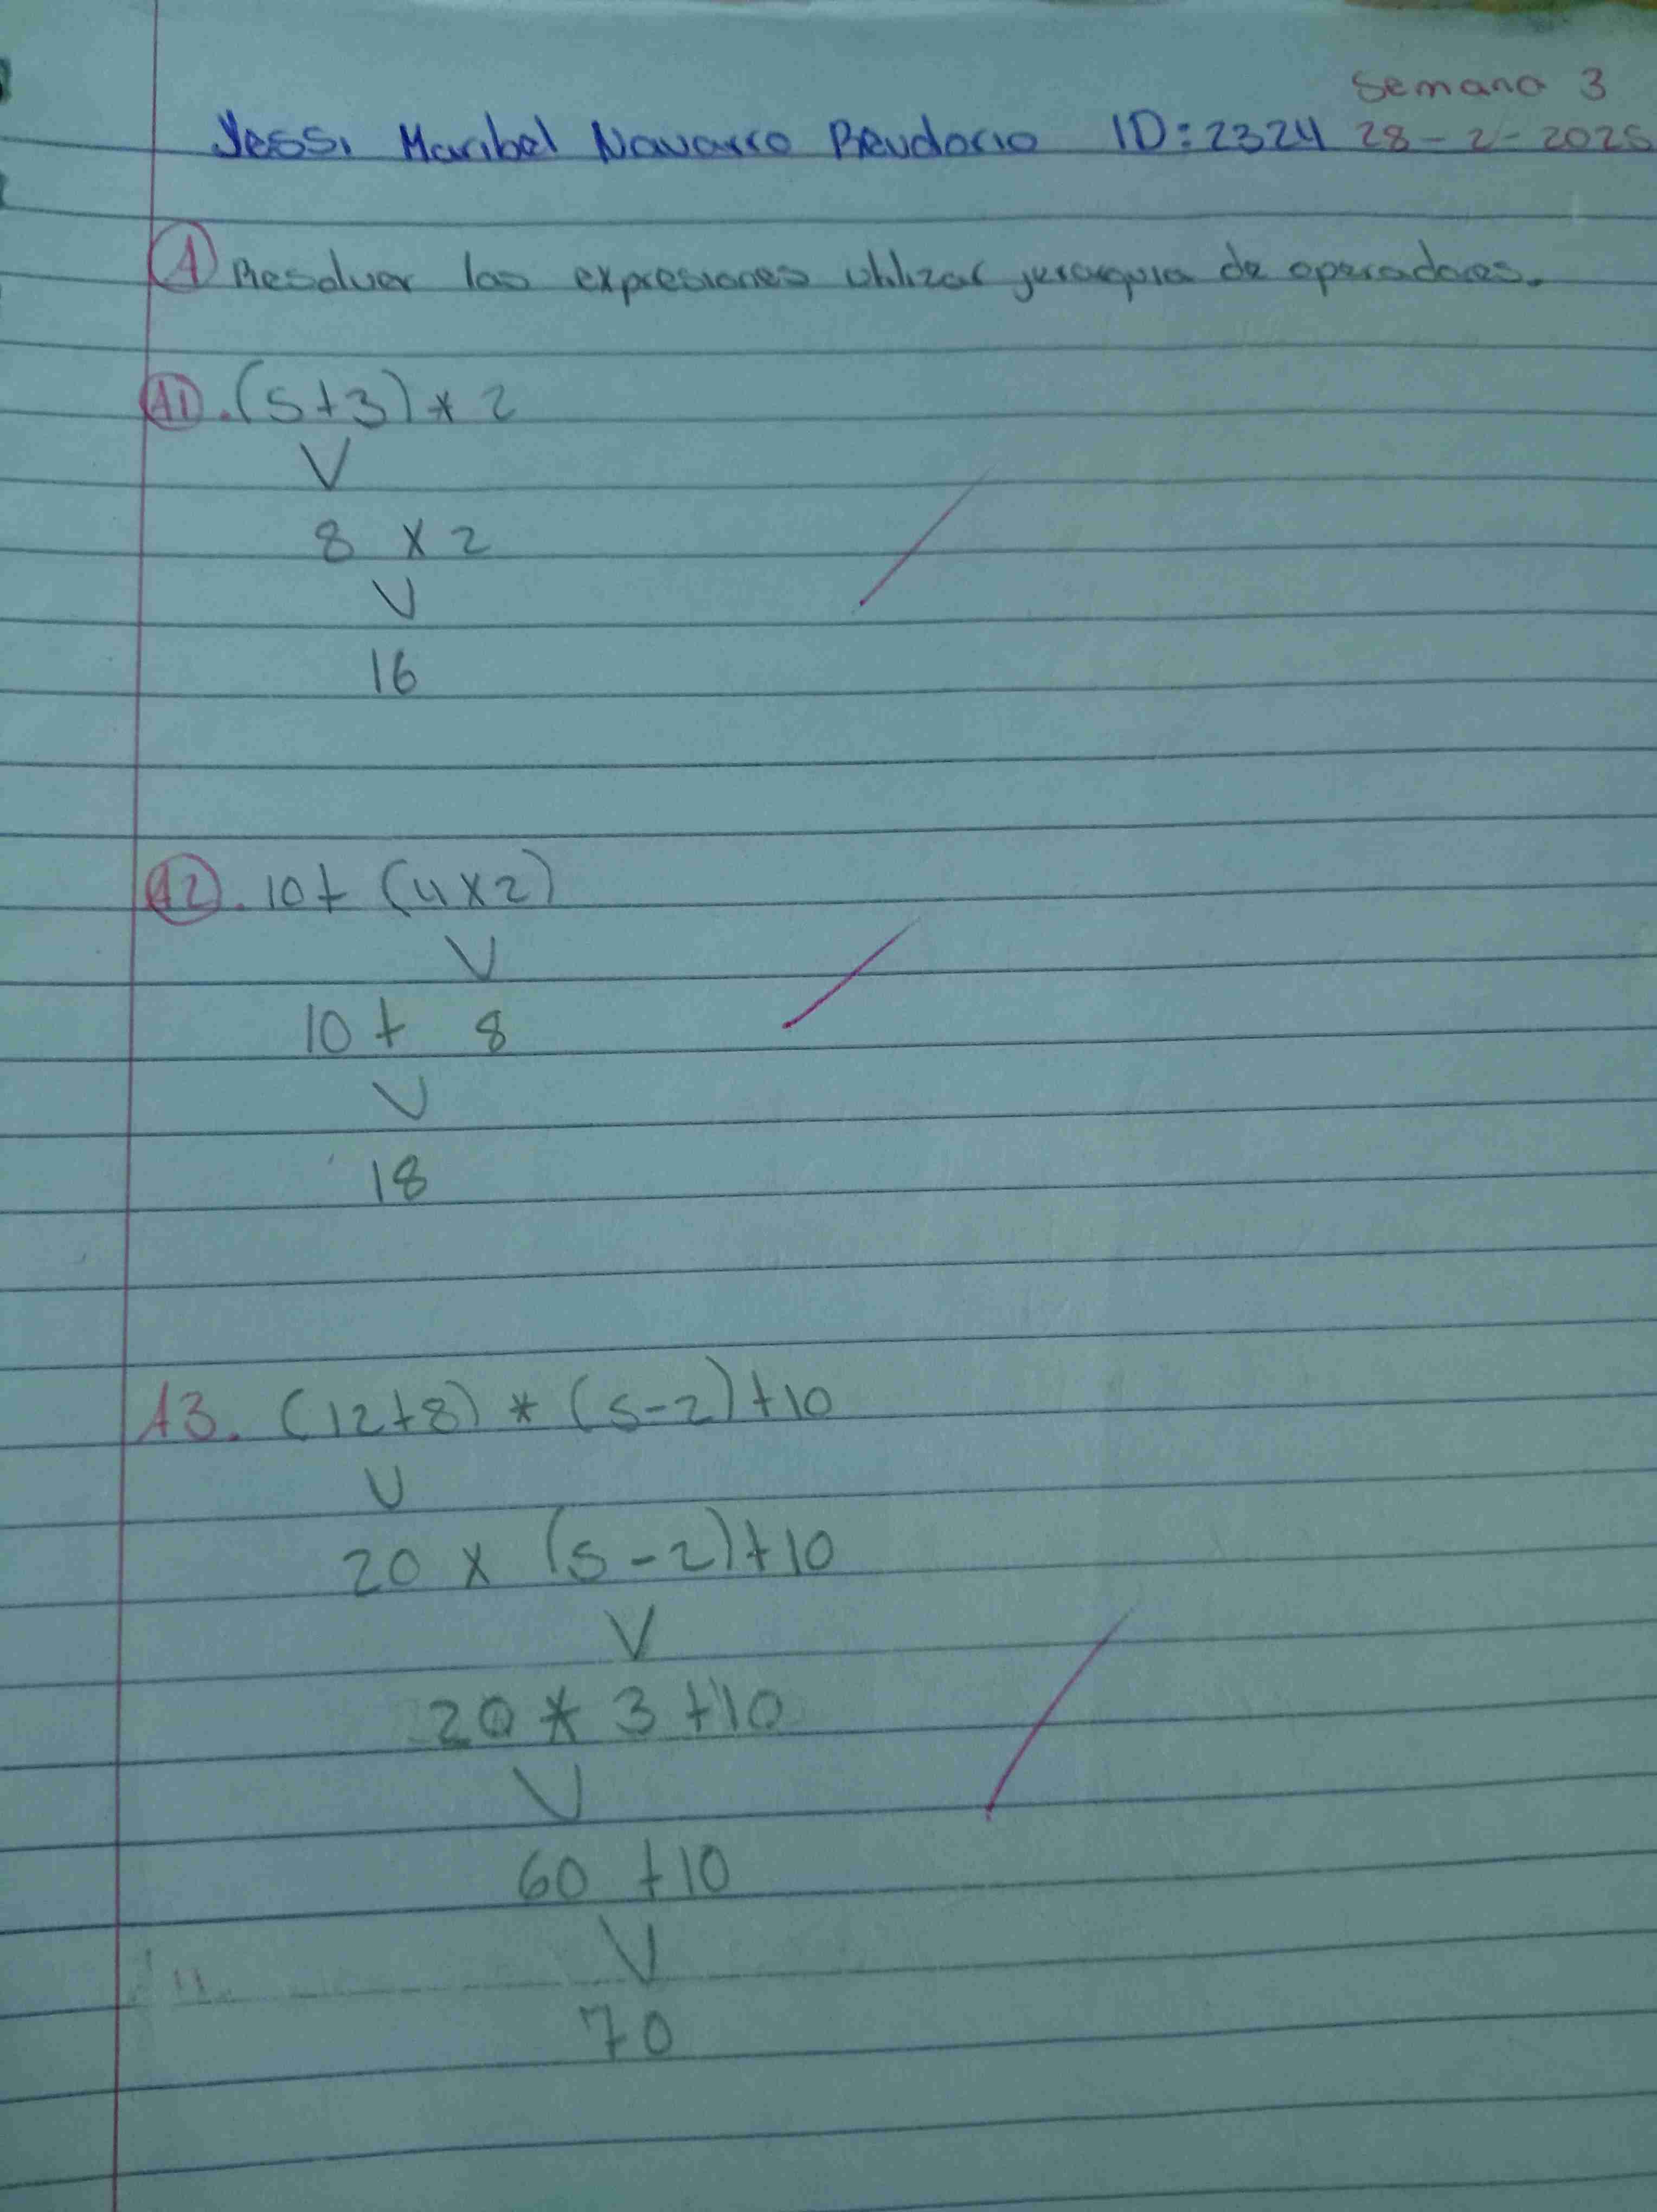 Semana 3
Yessi Maribel Navarro ID: 2324 28-2-2025
A Resolver las expresiones utilizar jerarquia de operadores.
A1. (5+3) * 2
V
8 x 2
V
16
A2. 10+ (4x2)
V
10 + 8
V
18
A3. (12+8) * (5-2)+10
V
20 x (5-2)+10
V
20 * 3 +10
V
60 +10
V
70